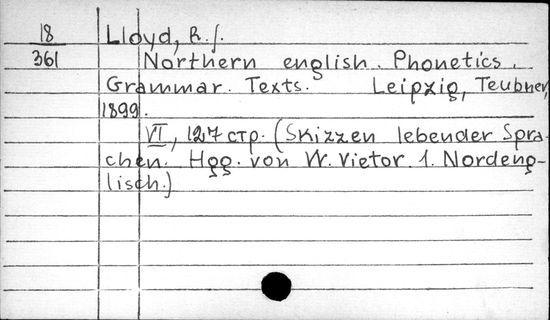 18 Lloyd, R. J.
361 Northern english. Phonetics.
Grammar. Texts. Leipzig, Teubner,
1899.
VI, 127 стр. (Skizzen lebender Spra-
chen. Hgg. von W. Vietor. 1. Nordeng-
lisch.)